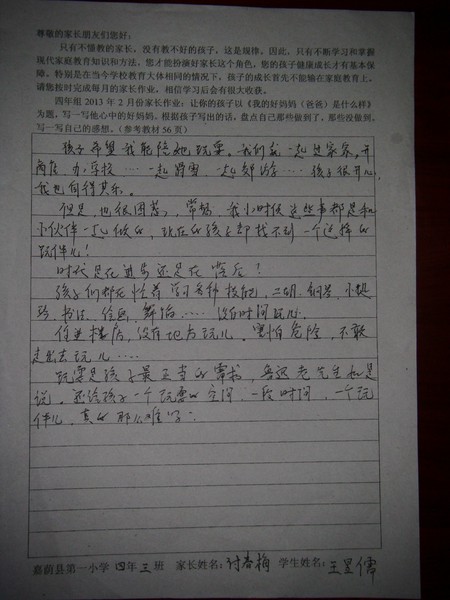 尊敬的家长朋友们您好：
只有不懂教的家长，没有教不好的孩子，这是规律。因此，只有不断学习和掌握
现代家庭教育知识和方法，您才能扮演好家长这个角色，您的孩子健康成长才有基本保
障。特别是在当今学校教育大体相同的情况下，孩子的成长首先不能输在家庭教育上。
请您按时完成每月的家长作业，相信学习后会有很大收获。
四年组 2013 年 2 月份家长作业：让你的孩子以《我的好妈妈（爸爸）是什么样》
为题，写一写他心中的好妈妈，根据孩子写出的话，盘点自己那些做到了，那些没做到，
写一写自己的感想。（参考教材 56 页）
孩子希望我能陪她玩耍。我们就一起过家家，开
商店，办学校……一起踏雪，一起郊游……孩子很开心，
我也自得其乐。
但是，也很困惑，常想，我小时候这些事都是和
小伙伴一起做的，现在的孩子却找不到一个这样的
玩伴儿！
时代是在进步还是在落后？
孩子们都在忙着学习各种技能，二胡、钢琴、小提
琴、书法、绘画、舞蹈……没有时间玩儿。
住进楼房，没有地方玩儿。害怕危险，不敢
走出去玩儿……
玩耍是孩子最正当的需求，鲁迅老先生如是
说。还给孩子一个玩耍的空间，一段时间，一个玩
伴儿，真的那么难吗？
嘉荫县第一小学 四年 三 班 家长姓名：付春梅 学生姓名：王星儒